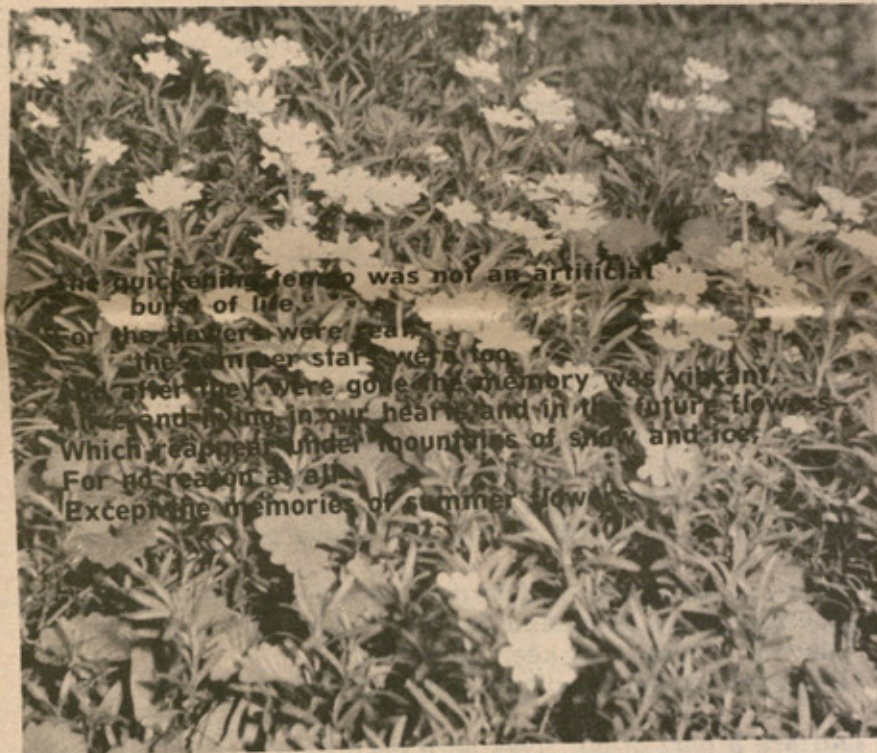 The quickening tempo was not an artificial
burst of life
For the flowers were real,
the summer stars were too.
And after they were gone the memory was vibrant,
and living in our hearts and in the future flowers
Which reappear under mountains of snow and ice,
For no reason at all
Except the memories of summer flowers.